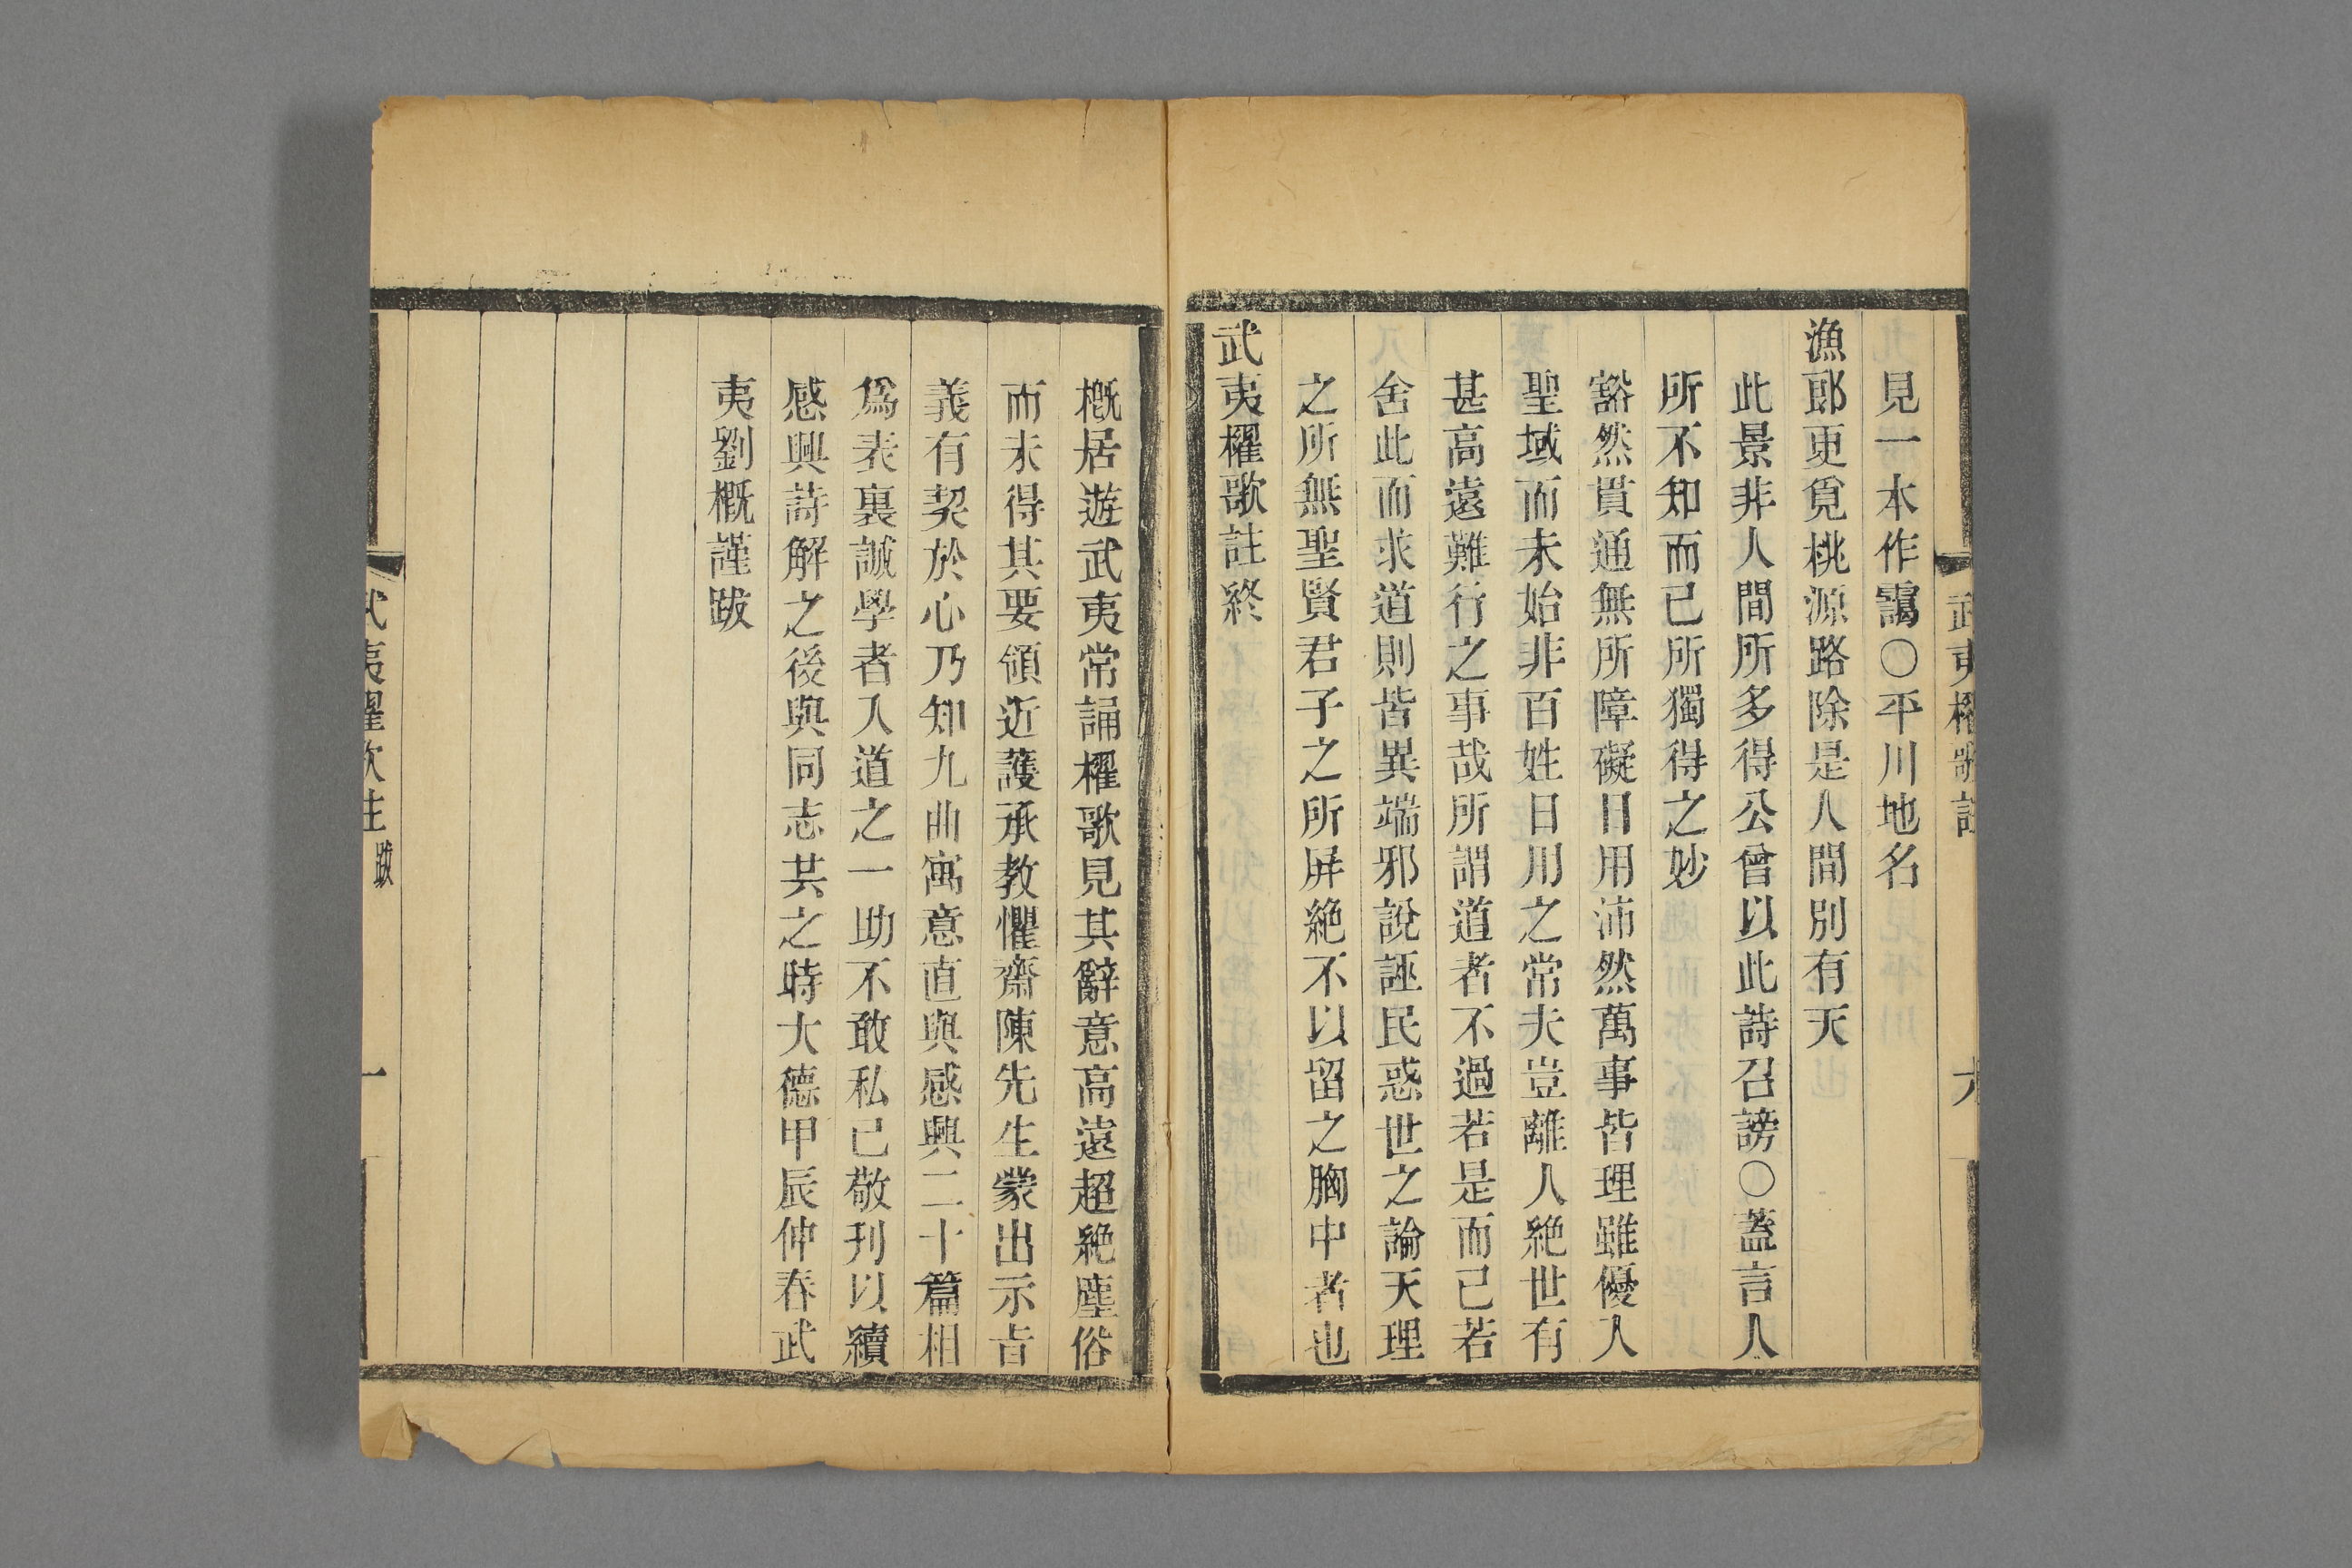 武夷櫂歌註
六
見一本作靄〇平川地名
漁郎更覓桃源路除是人間別有天
此景非人間所多得公曾以此詩召謗〇蓋言人
所不知而已所獨得之妙
豁然貫通無所障礙日用沛然萬事皆理雖優入
聖域而未始非百姓日用之常夫豈離人絶世有
甚高遠難行之事哉所謂道者不過若是而已若
舍此而求道則皆異端邪說誣民惑世之論天理
之所無聖賢君子之所屏絶不以留之胸中者也
武夷櫂歌註終
槪居遊武夷常誦櫂歌見其辭意高遠超絶塵俗
而未得其要領近護承教懼齋陳先生蒙出示㫖
義有契於心乃知九曲寓意直與感興二十篇相
爲表裏誠學者入道之一助不敢私已敬刊以續
感興詩解之後與同志共之時大德甲辰仲春武
夷劉槪謹跋
武夷櫂歌註跋
一